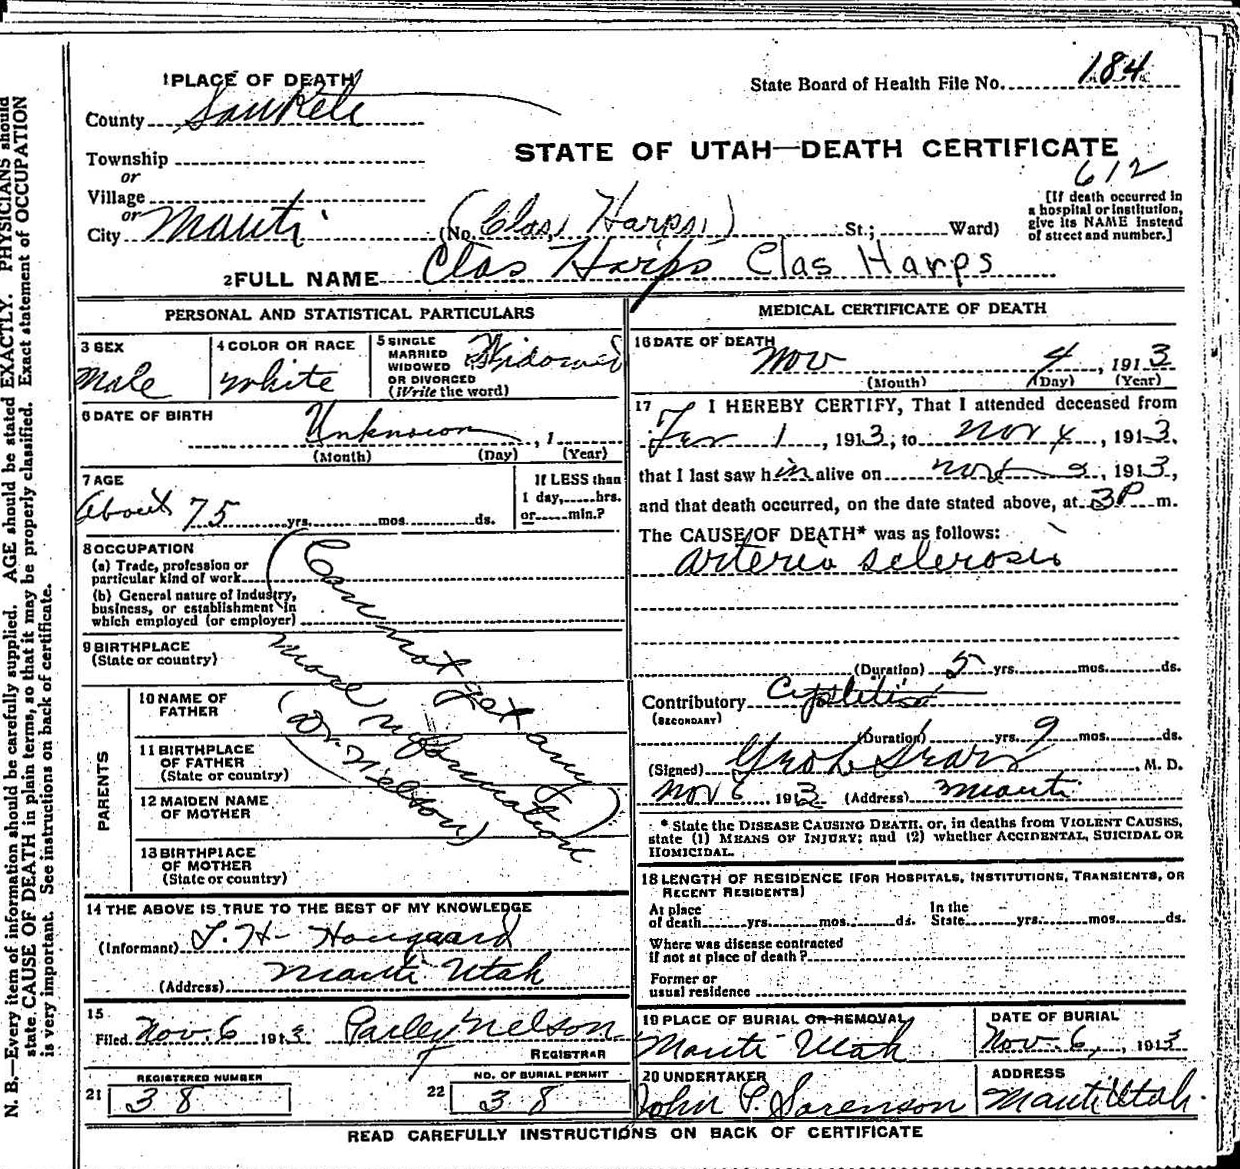 1 PLACE OF DEATH
State Board of Health File No. 184
County Sanpete
STATE OF UTAH—DEATH CERTIFICATE
Township
612
or
Village
or
City Manti (No. (Clas, Harps,) St.; Ward)
[If death occurred in
a hospital or institution,
give its NAME instead
of street and number.]
2 FULL NAME Clas Harps Clas Harps
PERSONAL AND STATISTICAL PARTICULARS
3 SEX
Male
4 COLOR OR RACE
White
5 SINGLE
MARRIED
WIDOWED
OR DIVORCED
(Write the word)
Widowed
6 DATE OF BIRTH
Unknown , 1
(Month) (Day) (Year)
7 AGE
About 75 yrs. mos. ds.
If LESS than
1 day, hrs.
or min.?
8 OCCUPATION
(a) Trade, profession or
particular kind of work
(b) General nature of industry,
business, or establishment in
which employed (or employer)
9 BIRTHPLACE
(State or country)
PARENTS
10 NAME OF
FATHER
11 BIRTHPLACE
OF FATHER
(State or country)
12 MAIDEN NAME
OF MOTHER
13 BIRTHPLACE
OF MOTHER
(State or country)
(Cannot get any
more information)
(Dr. Nielson)
14 THE ABOVE IS TRUE TO THE BEST OF MY KNOWLEDGE
(Informant) L. H. Hougaard
(Address) Manti Utah
15
Filed Nov. 6 1913 Parley Nelson
REGISTRAR
REGISTERED NUMBER
21 38
NO. OF BURIAL PERMIT
22 38
MEDICAL CERTIFICATE OF DEATH
16 DATE OF DEATH
Nov 4 , 1913
(Month) (Day) (Year)
17 I HEREBY CERTIFY, That I attended deceased from
1 , 1913, to Nov 4 , 1913,
that I last saw him alive on Nov , 1913,
and that death occurred, on the date stated above, at 3P m.
The CAUSE OF DEATH* was as follows:
Arterio sclerosis
(Duration) 5 yrs. mos. ds.
Contributory
(SECONDARY)
(Duration) yrs. 9 mos. ds.
(Signed) Geo L Sears , M. D.
Nov 6 1913 (Address) Manti
* State the DISEASE CAUSING DEATH, or, in deaths from VIOLENT CAUSES,
state (1) MEANS OF INJURY; and (2) whether ACCIDENTAL, SUICIDAL OR
HOMICIDAL.
18 LENGTH OF RESIDENCE (FOR HOSPITALS, INSTITUTIONS, TRANSIENTS, OR
RECENT RESIDENTS)
At place
of death yrs. mos. ds.
In the
State yrs. mos. ds.
Where was disease contracted
if not at place of death?
Former or
usual residence
19 PLACE OF BURIAL OR REMOVAL
Manti Utah
DATE OF BURIAL
Nov. 6, , 1913
20 UNDERTAKER
John P. Sorenson
ADDRESS
Manti Utah.
READ CAREFULLY INSTRUCTIONS ON BACK OF CERTIFICATE
N. B.—Every item of information should be carefully supplied. AGE should be stated EXACTLY. PHYSICIANS should
state CAUSE OF DEATH in plain terms, so that it may be properly classified. Exact statement of OCCUPATION
is very important. See instructions on back of certificate.